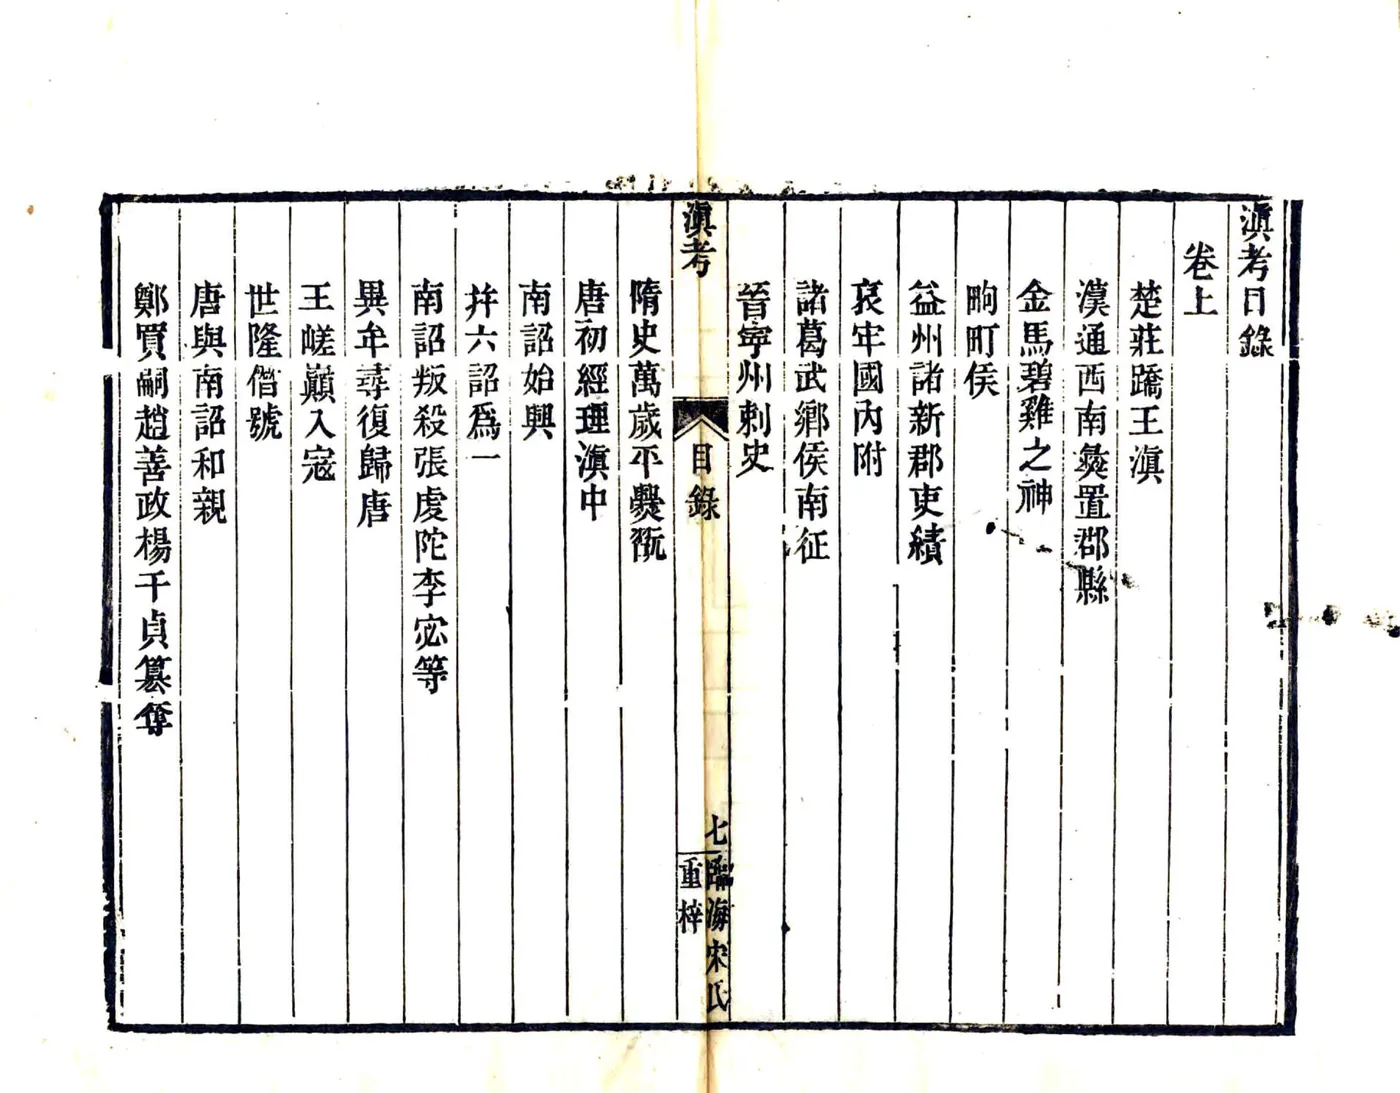 滇考目錄
卷上
楚莊蹻王滇
漢通西南彝置郡縣
金馬碧雞之神
畇町侯
益州諸新郡吏績
哀牢國內附
諸葛武鄉侯南征
晉寧州刺史
滇考
目錄
七
臨海宋氏
重梓
隋史萬歲平爨翫
唐初經理滇中
南詔始興
并六詔爲一
南詔叛殺張虔陀李宓等
異牟尋復歸唐
王嵯巔入寇
世隆僭號
唐與南詔和親
鄭買嗣趙善政楊干貞篡奪